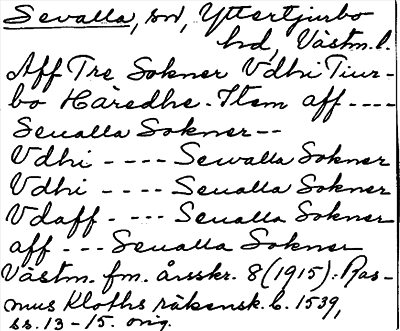 Sevalla, sn, Yttertjurbo
hd, Västm. l.
Aff Tre Sokner Vdhi Tiur-
bo Häredhe. Item aff ----
Seualla Sokner --
Vdhi ---- Sewalla Sokner
Vdhi ---- Seualla Sokner
Vdaff ---- Seualla Sokner
aff --- Seualla Sokner
Västm. fm. årsskr. 8 (1915): Ras-
mus Kloths räkensk. b. 1539,
ss. 13-15. orig.